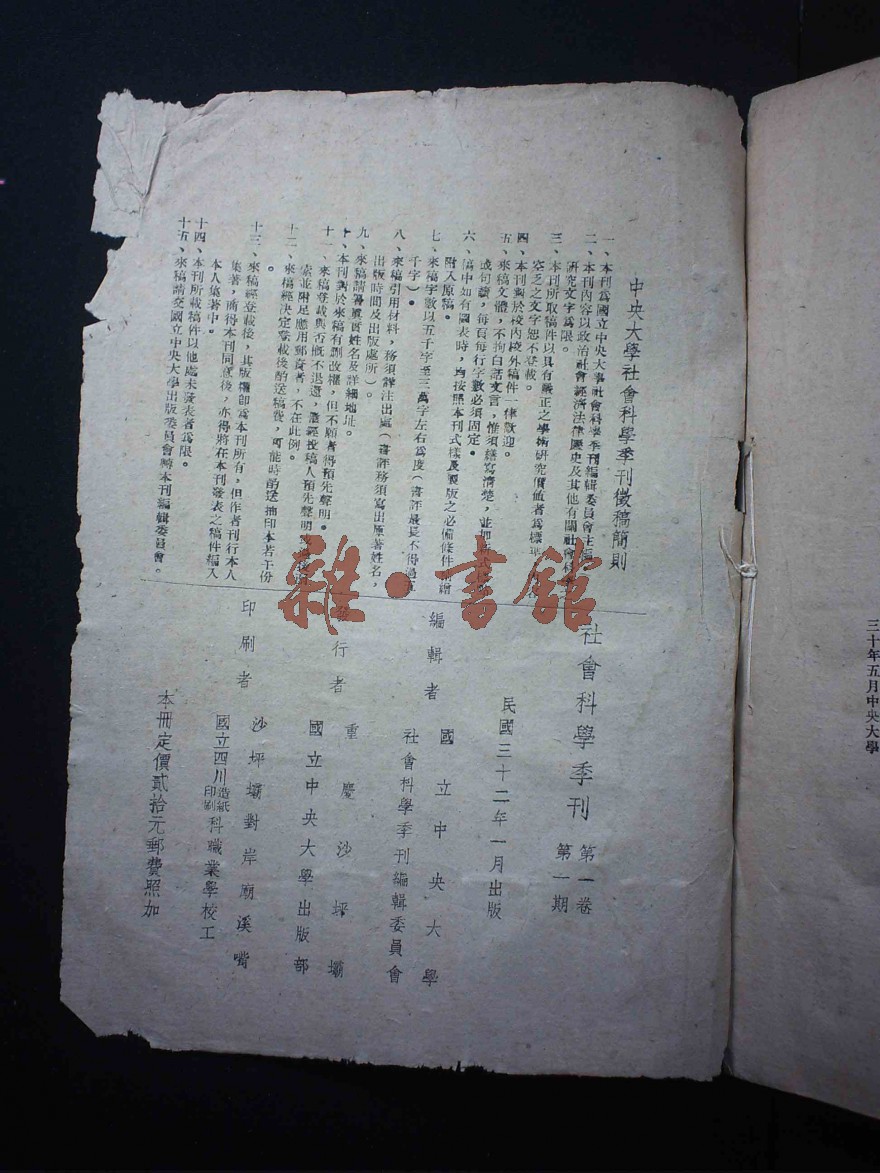 中央大學社會科學季刊徵稿簡則
一、本刊爲國立中央大學社會科學季刊編輯委員會主編
二、本刊內容以政治社會經濟法律歷史及其他有關社會科學
研究文字爲限。
三、本刊所取稿件以具有嚴正之學術研究價値者爲標準
空乏之文字恕不登載。
四、本刊對於校內校外稿件一律歡迎。
五、來稿文體，不拘白話文言，惟須繕寫清楚，並加
或句讀，每頁每行字數必須固定。
六、稿中如有圖表時，均按照本刊式樣及製版之必備條件 繪
附入原稿。
七、來稿字數以五千字至三萬字左右爲度（書評最長不得過
千字）。
八、來稿引用材料，務須詳注出處（書評務須寫出原著姓名，
出版時間及出版處所）。
九、來稿請署眞實姓名及詳細地址。
十、本刊對於來稿有刪改權，但不願者得預先聲明。
十一、來稿登載與否概不退還，儻經投稿人預先聲明
索並附足應用郵資者，不在此例。
十二、來稿經決定登載後酌送稿費，可能時酌送抽印本若干份
。
十三、來稿經登載後，其版權卽爲本刊所有，但作者刊行本人
集著，商得本刊同意後，亦得將在本刊發表之稿件編入
本人集著中。
十四、本刊所載稿件以他處未發表者爲限。
十五、來稿請交國立中央大學出版委員會轉本刊編輯委員會。
社會科學季刊
第一卷
第一期
民國三十二年一月出版
編輯者
國立中央大學
社會科學季刊編輯委員會
發行者
重慶沙坪壩
國立中央大學出版部
印刷者
沙坪壩對岸廟溪嘴
國立四川造紙印刷科職業學校工
本冊定價貳拾元郵費照加
三十年五月中央大學
雜·書館